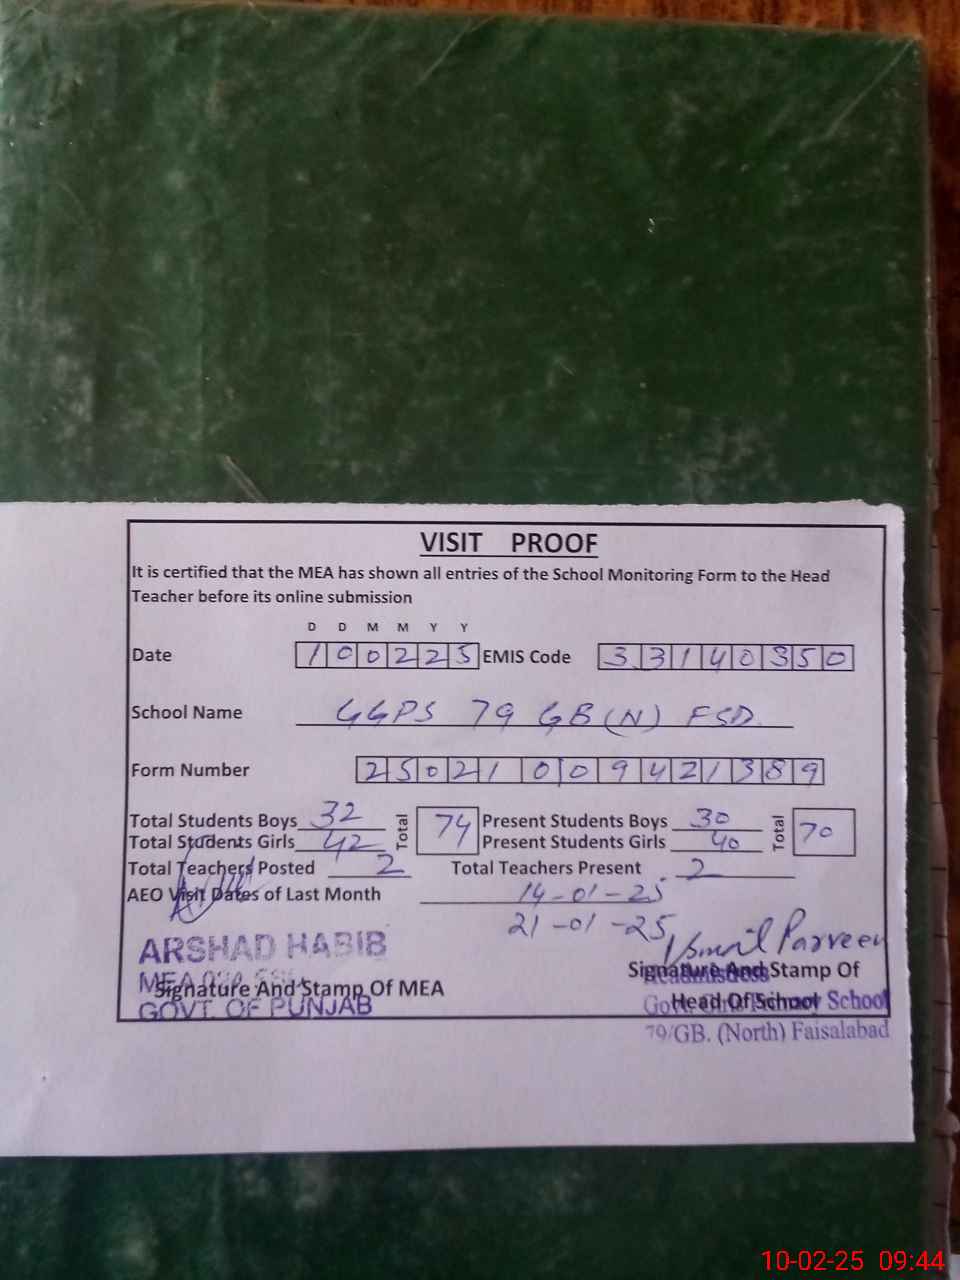 VISIT PROOF
It is certified that the MEA has shown all entries of the School Monitoring Form to the Head
Teacher before its online submission
D D M M Y Y
Date 100225 EMIS Code 33140350
School Name GGPS 79 GB (N) FSD.
Form Number 25021009421389
Total Students Boys 32 Total 74 Present Students Boys 30 Total 70
Total Students Girls 42 Present Students Girls 40
Total Teachers Posted 2 Total Teachers Present 2
AEO Visit Dates of Last Month 14-01-25
21-01-25
Parveen
ARSHAD HABIB
MEA
Signature And Stamp Of MEA
GOVT. OF PUNJAB
Signature And Stamp Of
Head Of School
Govt. Girls Primary School
79/GB. (North) Faisalabad
10-02-25 09:44